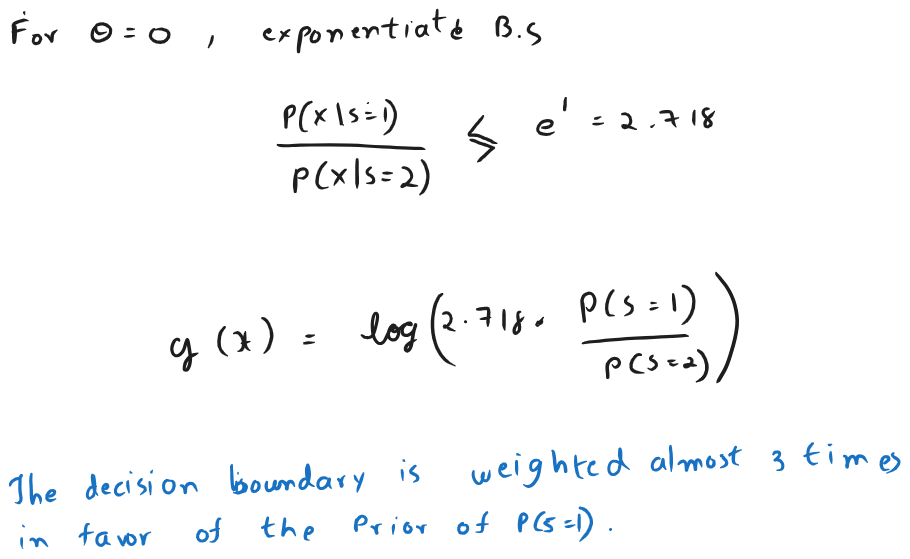 For Θ = 0 , exponentiate B.S
P(x|s=1) / P(x|s=2) ≶ e¹ = 2.718
g(x) = log(2.718. P(s=1) / P(s=2))
The decision boundary is weighted almost 3 times
in favor of the Prior of P(s=1).